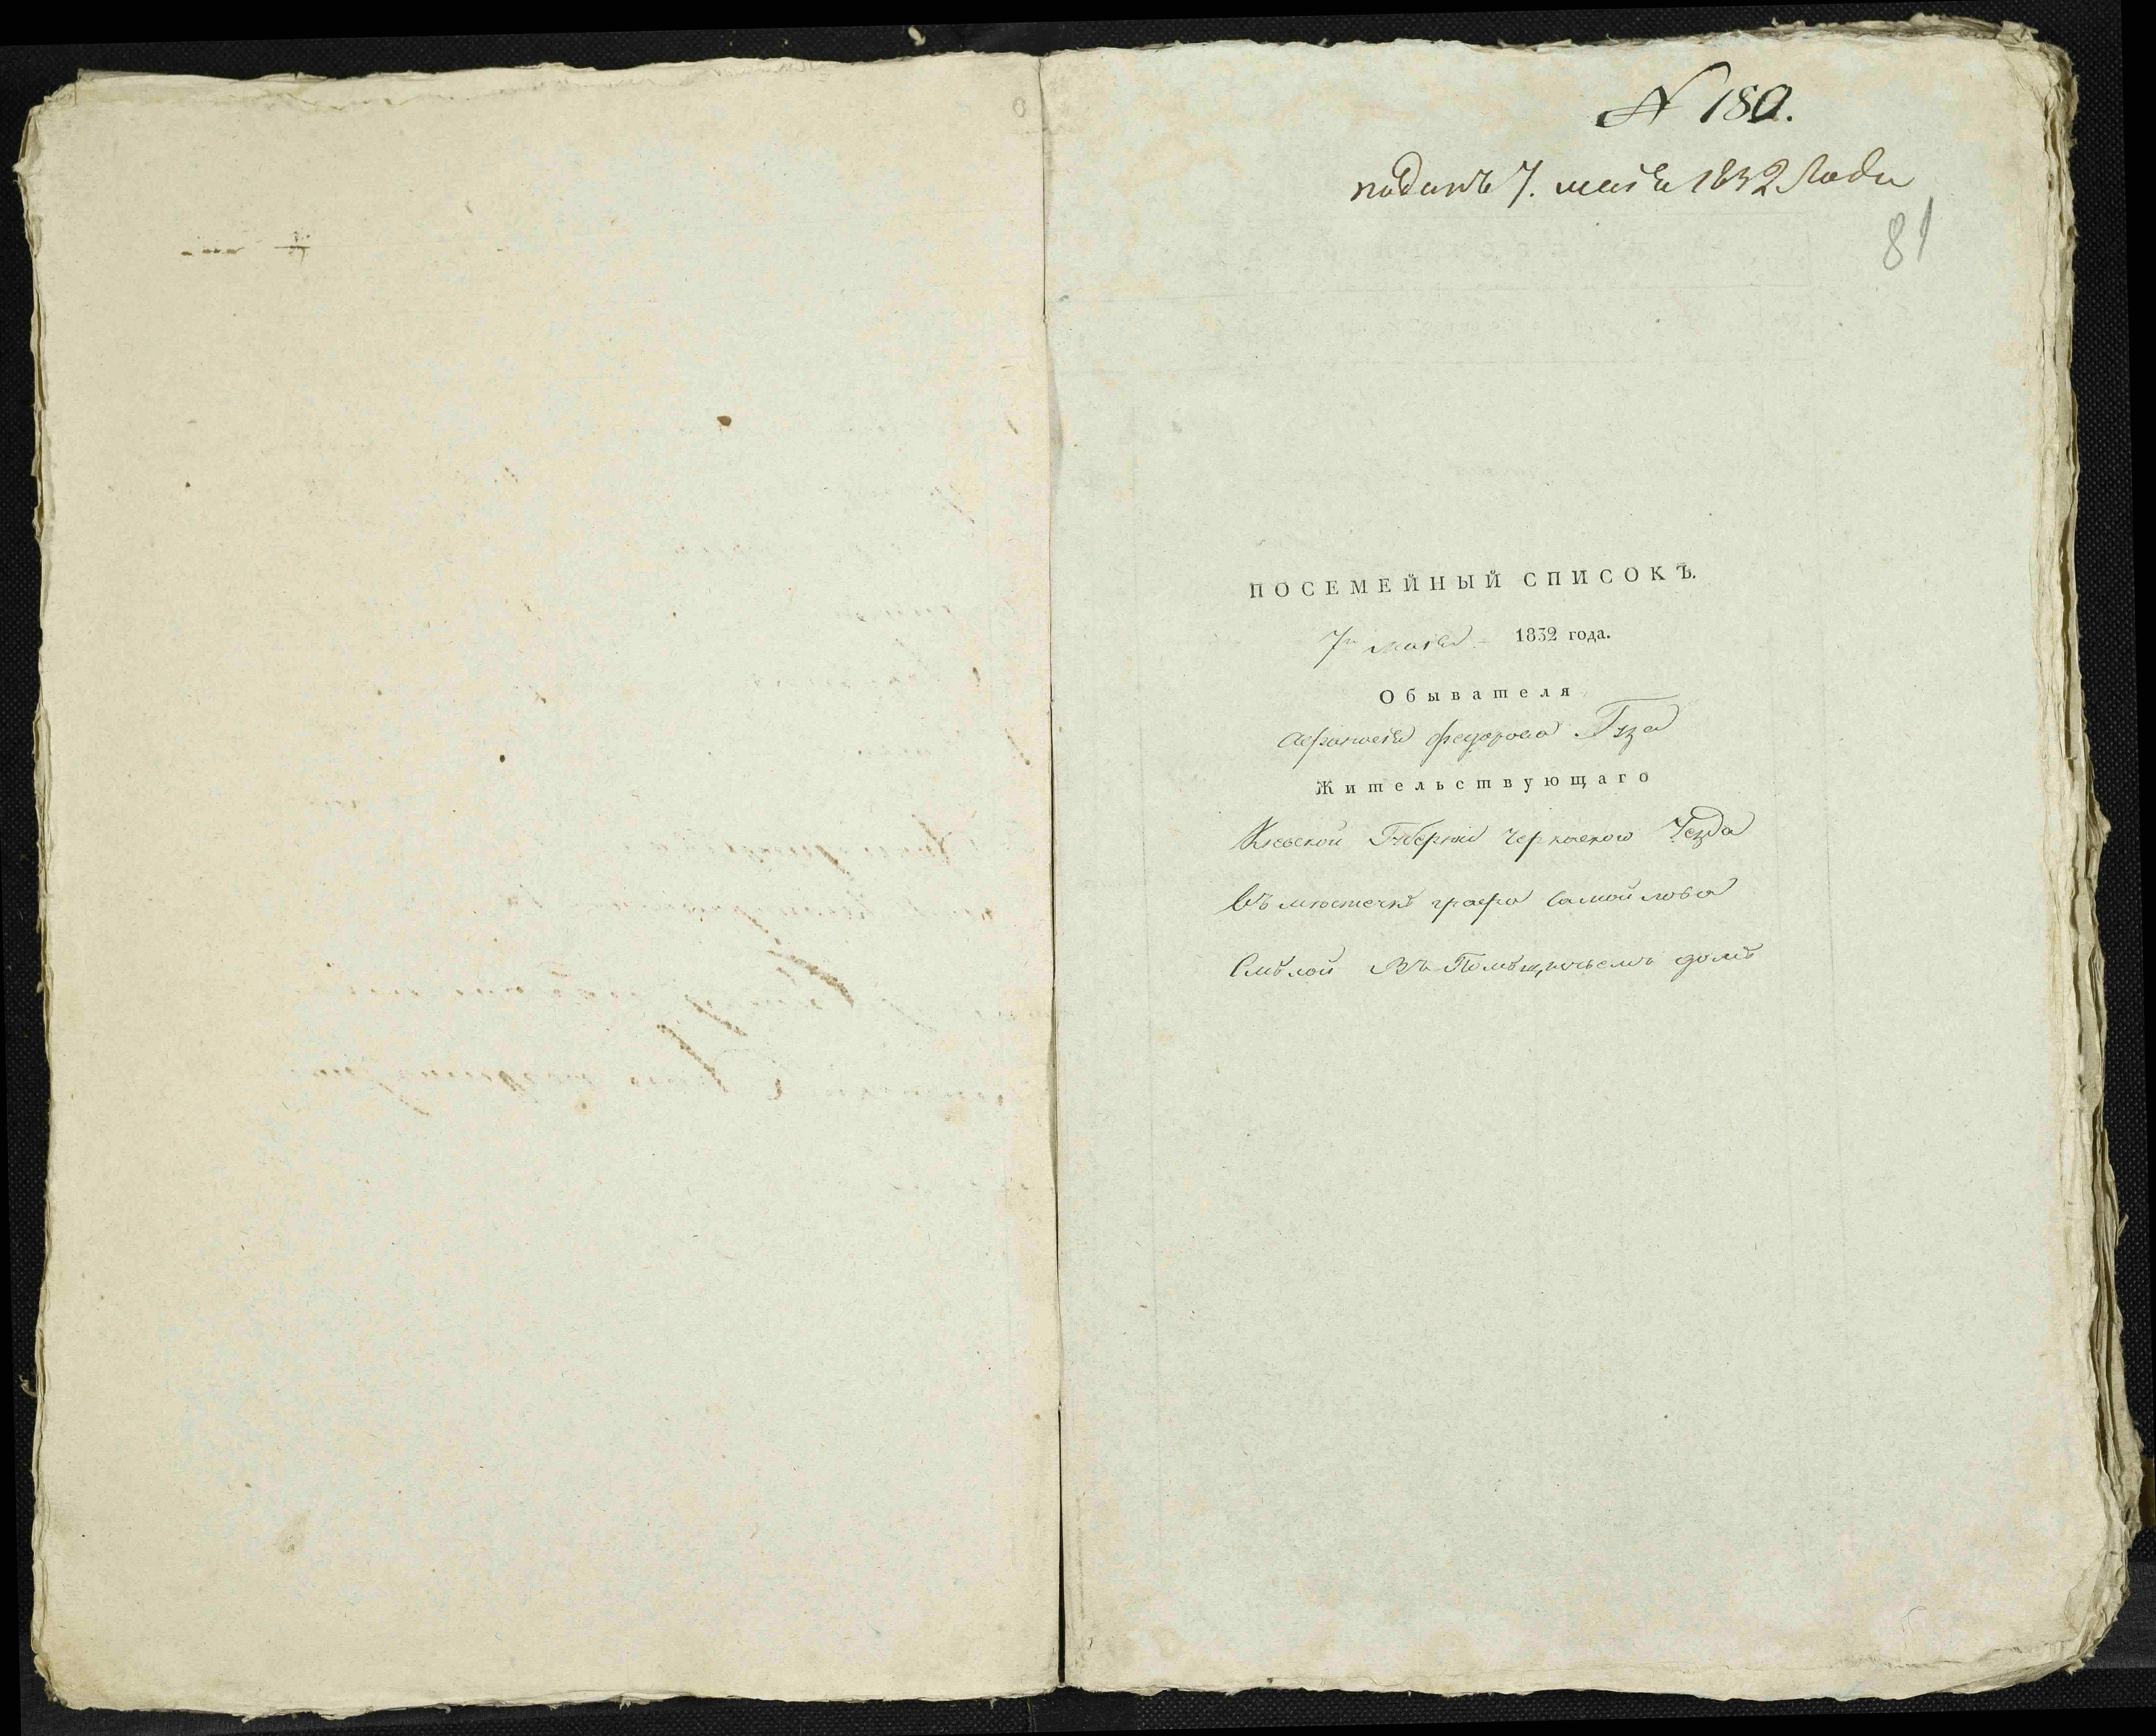 N 180.
поданъ 7. маія 1832 года
81
ПОСЕМЕЙНЫЙ СПИСОКЪ.
7го маія 1832 года.
Обывателя
Афанасія федорова Гуза
Жительствующаго
Кіевской Губерніи Черкаского Уезда
Въ местечкѣ графа Самойлова
Смѣлой Въ Помѣщичьемъ домѣ